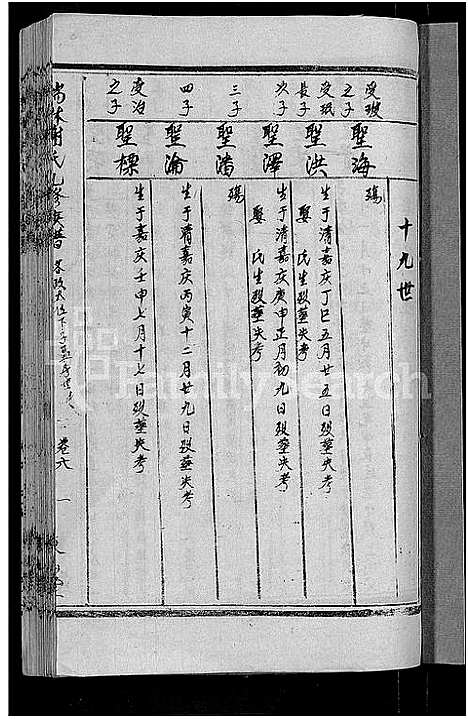 十九世
受玻之子
聖海
殤
受珉長子
聖洪
生于清嘉庆丁巳五月廿五日殁塟失考
娶 氏生殁塟失考
次子
聖澤
生于清嘉庆庚申正月初九日殁塟失考
娶 氏生殁塟失考
三子
聖潘
殤
四子
聖淪
生于清嘉庆丙寅十二月廿九日殁塟失考
受治之子
聖標
生于嘉庆壬申七月十七日殁塟失考
氏九修族譜
卷六
一
FamilySearch